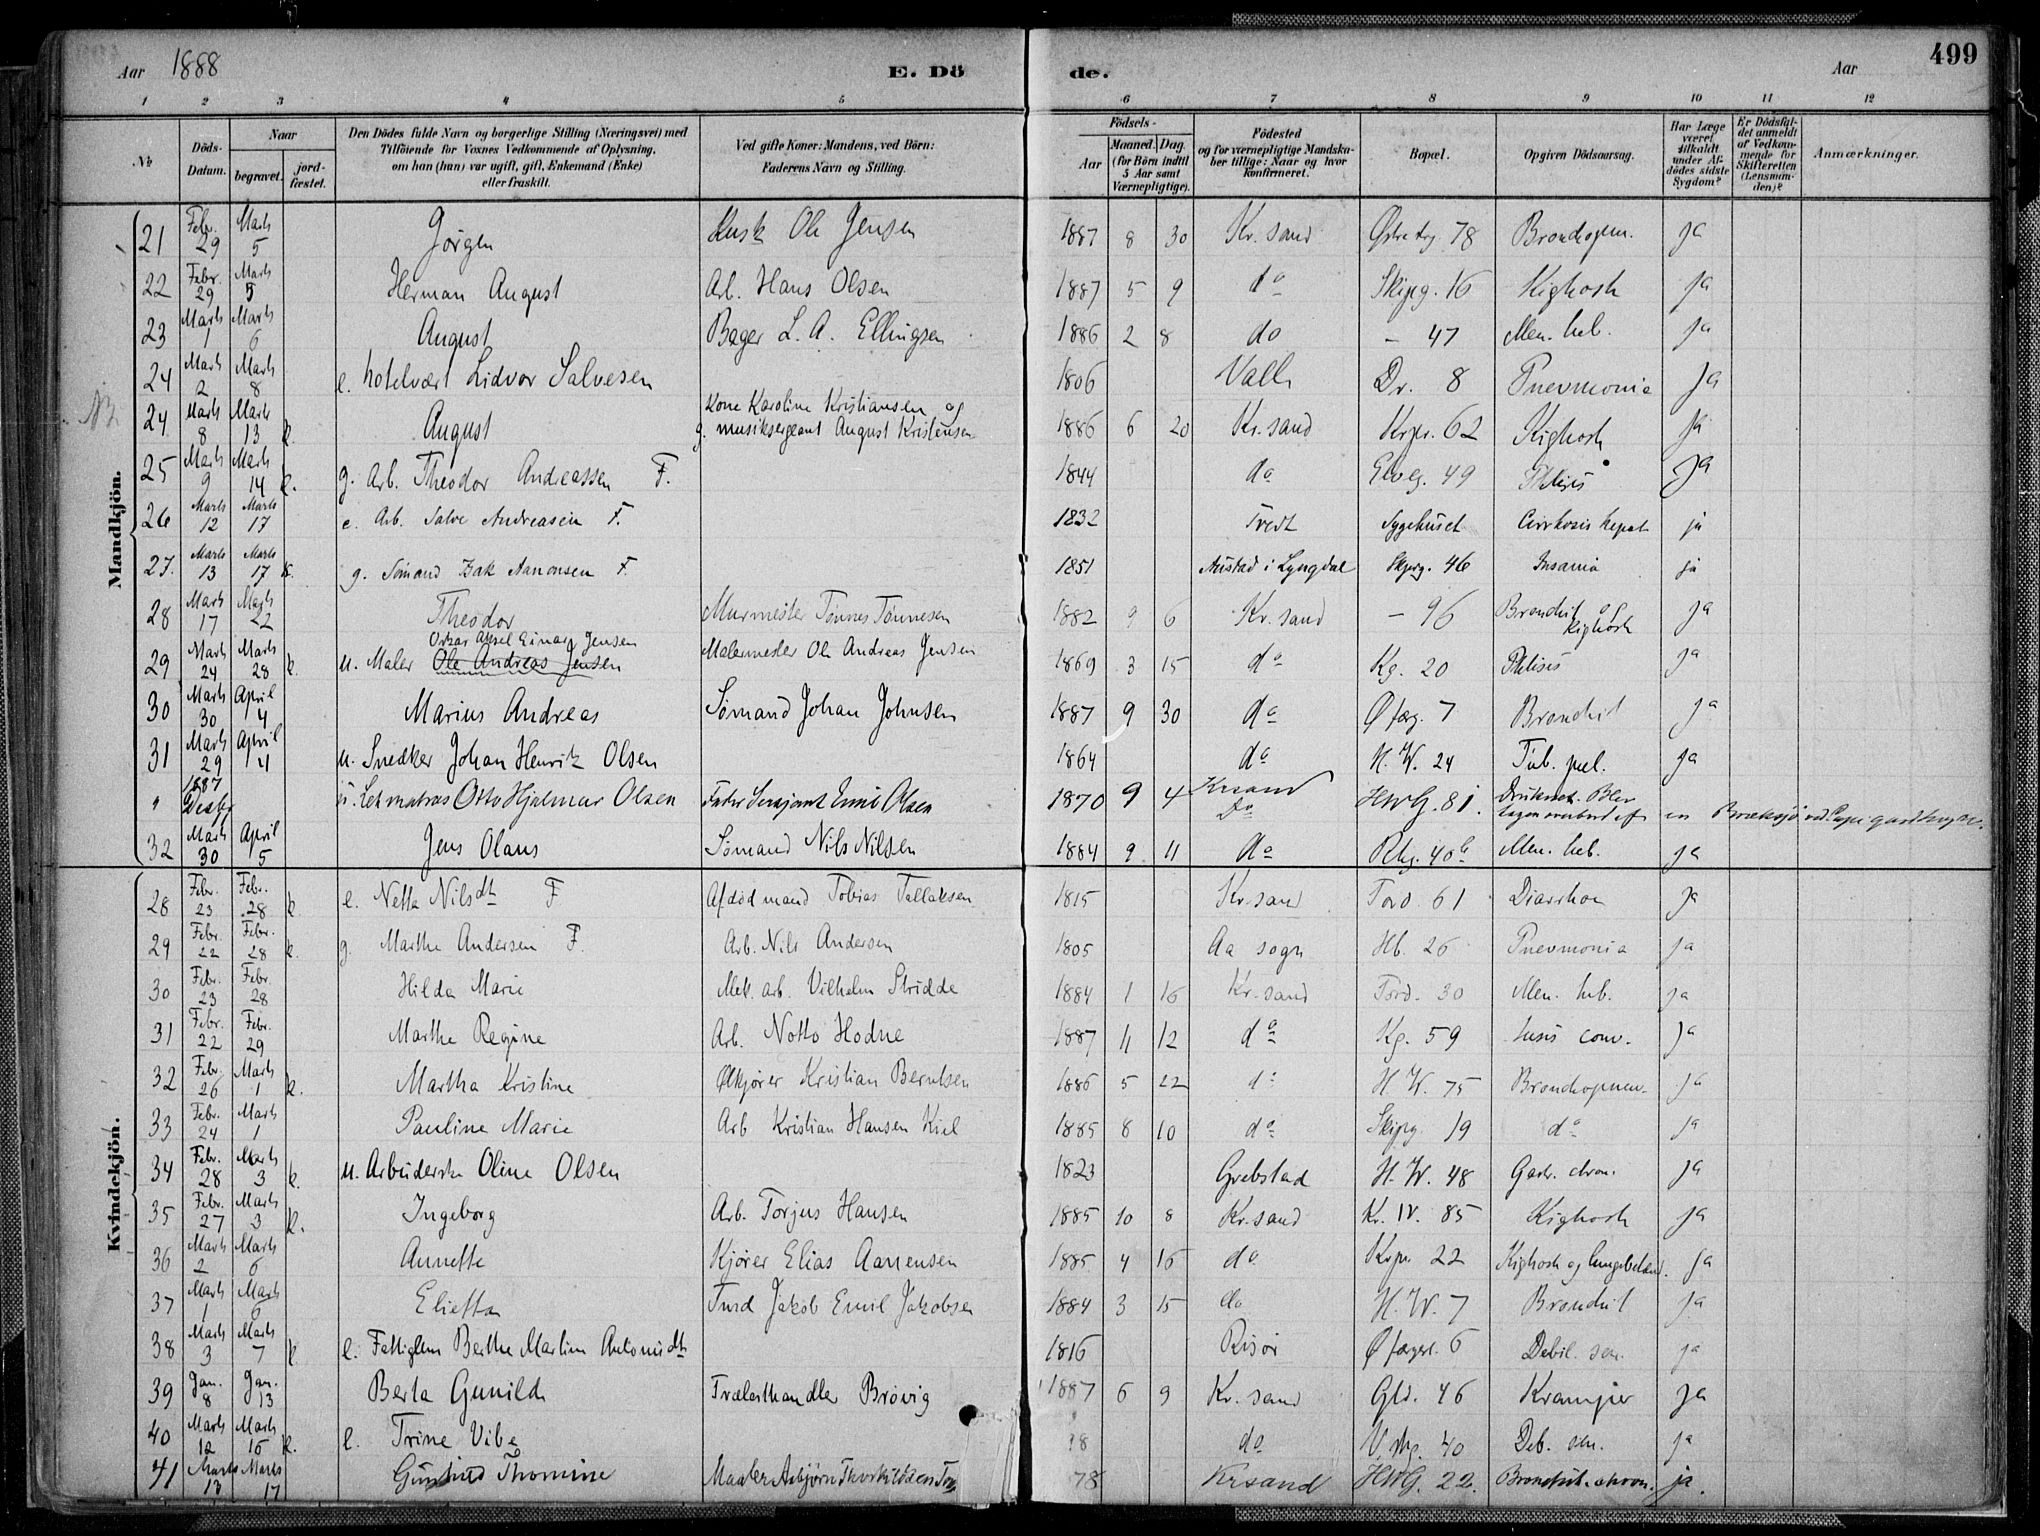 Aar 1888 E. Dö de. Aar 499
1 2 3 4 5 6 7 8 9 10 11 12
№ Döds-Datum. Naar begravet. jordfæstet. Den Dödes fulde Navn og borgerlige Stilling (Næringsvei) med Tilföiende for Voxnes Vedkommende af Oplysning, om han (hun) var ugift, gift, Enkemand (Enke) eller fraskilt. Ved gifte Koner: Mandens, ved Börn: Faderens Navn og Stilling. Födsels- Aar Maaned. Dag. (for Börn indtil 5 Aar samt Værnepligtige). Födested og for værnepligtige Mandskaber tillige: Naar og hvor konfirmeret. Bopæl. Opgiven Dödsaarsag. Har Læge været tilkaldt under Afdödes sidste Sygdom? Er Dödsfaldet anmeldt af Vedkommende for Skifteretten (Lensmanden)? Anmærkninger.
Mandkjön.
21 Febr. 29 Marts 5 Jörgen Kusk Ole Jensen 1887 8 30 Kr.sand Østre stg. 78 Bronchopnm. ja
22 Febr. 29 Marts 5 Herman August Arb. Hans Olsen 1887 5 9 do Skipg. 16 Kighoste ja
23 Marts 1 Marts 6 August Bager L. A. Ellingsen 1886 2 8 do — 47 Men. tub. ja
24 Marts 2 Marts 8 e. hotelvært Lidvor Salvesen 1806 Valle Dr. 8 Pnevmonia ja
24 Marts 8 Marts 13 k. August Kone Karoline Kristiansen og g. musiksergeant August Kristensen 1886 6 20 Kr.sand Krpr. 62 Kighoste ja
25 Marts 9 Marts 14 k. g. Arb. Theodor Andreassen F. 1844 do Elveg. 49 Phtisis ja
26 Marts 12 Marts 17 e. Arb. Salve Andreasen F. 1832 Tveit Sygehuset Cirrhosis hepat ja
27. Marts 13 Marts 17 k. g. Sømand Isak Aanonsen F. 1851 Austad i Lyngdal Skipg. 46 Insania ja
28 Marts 17 Marts 22 Theodor Murmester Tønnes Tønnesen 1882 9 6 Kr.sand — 96 Bronchit og Kighoste ja
29 Marts 24 Marts 28 k. u. Maler Oskar Aksel Einar Jensen Ole Andreas Jensen Malermester Ole Andreas Jensen 1869 3 15 do Kg. 20 Phtisis ja
30 Marts 30 April 4 Marius Andreas Sømand Johan Johnsen 1887 9 30 do Ø fæg. 7 Bronchit ja
31 Marts 29 April 4 u. Snedker Johan Henrik Olsen 1864 do H. W. 24 Tub. pul. ja
" 1887 u. Letmatros Otto Hjalmar Olsen Fader Sersjant Emil Olsen 1870 9 4 Krsand Do HWG. 81. Druknet. Blev tagen overbord af en Brodsjø
32 Marts 30 April 5 Jens Olaus Sømand Nils Nilsen 1884 9 11 do Rhg. 40b Men. tub. ja
Kvindekjön.
28 Febr. 23 Febr. 28 k. e. Netta Nilsdt F Afdød mand Tobias Tallaksen 1815 Kr.sand Tord. 61 Diarrhoe ja
29 Febr. 22 Febr. 28 k. g. Marthe Andersen F. Arb. Nils Andersen 1805 Aa sogn Hb. 26 Pnevmonia ja
30 Febr. 23 Febr. 28 Hilda Marie Mek. arb. Vilhelm Stridde 1884 1 16 Kr.sand Tord. 30 Men. tub. ja
31 Febr. 22 Febr. 29 Marthe Regine Arb. Notto Hodne 1887 11 12 do Kg. 59 tusis conv. ja
32 Febr. 26 Marts 1 k. Martha Kristine Ølkjører Kristian Berntsen 1886 5 22 do H. W. 75 Bronchopnew. ja
33 Febr. 24 Marts 1 Pauline Marie Arb Kristian Hansen Kiel 1885 8 10 do Skipg. 19 do ja
34 Febr. 28 Marts 3 k. u. Arbeiderske Oline Olsen 1823 Grebstad H. W. 48 Gastr. chron. ja
35 Febr. 27 Marts 3 k. Ingeborg Arb. Torjus Hansen 1885 10 8 Kr.sand Kr. IV. 85 Kighoste ja
36 Marts 2 Marts 6 Annette Kjører Elias Aanensen 1885 4 16 do Krpr. 22 Kighoste og lungebetænd. ja
37 Marts 1 Marts 6 Elietta Jakob Emil Jakobsen 1884 3 15 do H. W. 7 Bronchit ja
38 Marts 3 Marts 7 k. e. Fattiglem Berthe Martine Antonisdt 1816 Risør Ø fæger. 6 Debil. sen. ja
39 Jan. 8 Jan. 13 Berta Gunilde Trælasthandler Brøvig 1887 6 9 Kr.sand Gld. 46 Kramper ja
40 Marts 12 Marts 16 k. e. Trine Vibe 18 do V. stg. 40 Deb. sen. ja
41 Marts 13 Marts 17 Thomine Maaler Asbjørn Thorkildsen 78 Krsand HWG. 22. Bronchit. chron. ja.